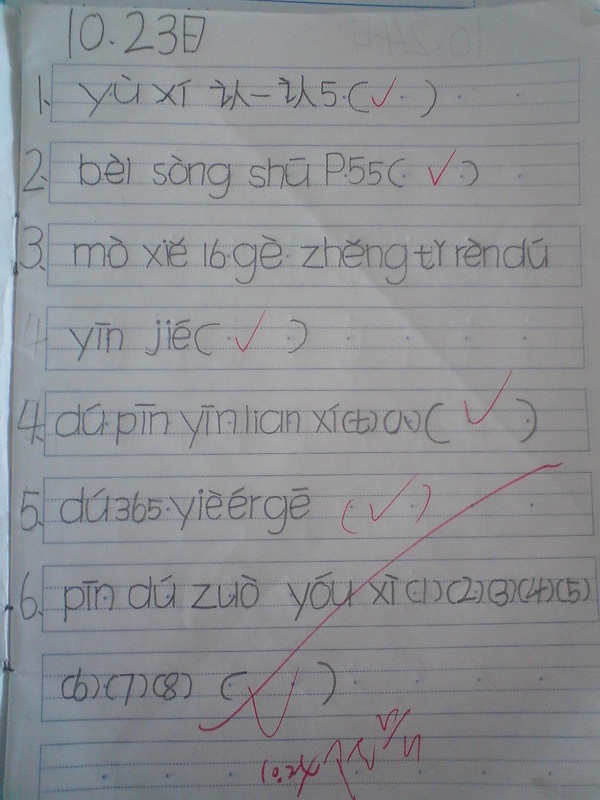 10.23日
1. yù xí 认一认5.(✓)
2. bèi sòng shū P.55(✓)
3. mò xiě 16 gè zhěng tǐ rèn dú
yīn jié(✓)
4. dú pīn yīn lian xí(七)(八)(✓)
5. dú 365 yièérgē (✓)
6. pīn dú zuò yóu xì (1)(2)(3)(4)(5)
(6)(7)(8) (✓)
10.24